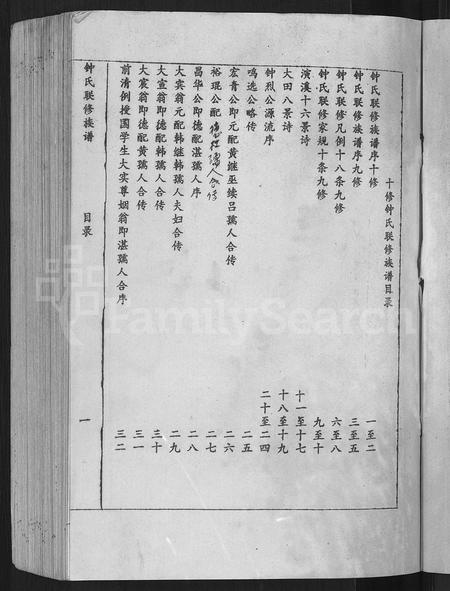 十修钟氏联修族谱目录
钟氏联修族谱序十修 一至二
钟氏联修族谱序九修 三至五
钟氏联修凡例十八条九修 六至八
钟氏联修家规十条九修 九至十
演溪十六景诗 十一至十七
大田八景诗 十八至十九
钟烈公源流序 二十至二四
鸣选公略传 二五
宏青公即元配黄继巫续吕孺人合传 二六
裕琨公配 孺人合传 二七
昌华公即德配湛孺人序 二八
大宾翁元配韩继韩孺人夫妇合传 二九
大宣翁即德配韩孺人合传 三十
大宸翁即德配黄孺人合传 三一
前清例授国学生大实尊姻翁即湛孺人合序 三二
钟氏联修族谱 目录 一
FamilySearch